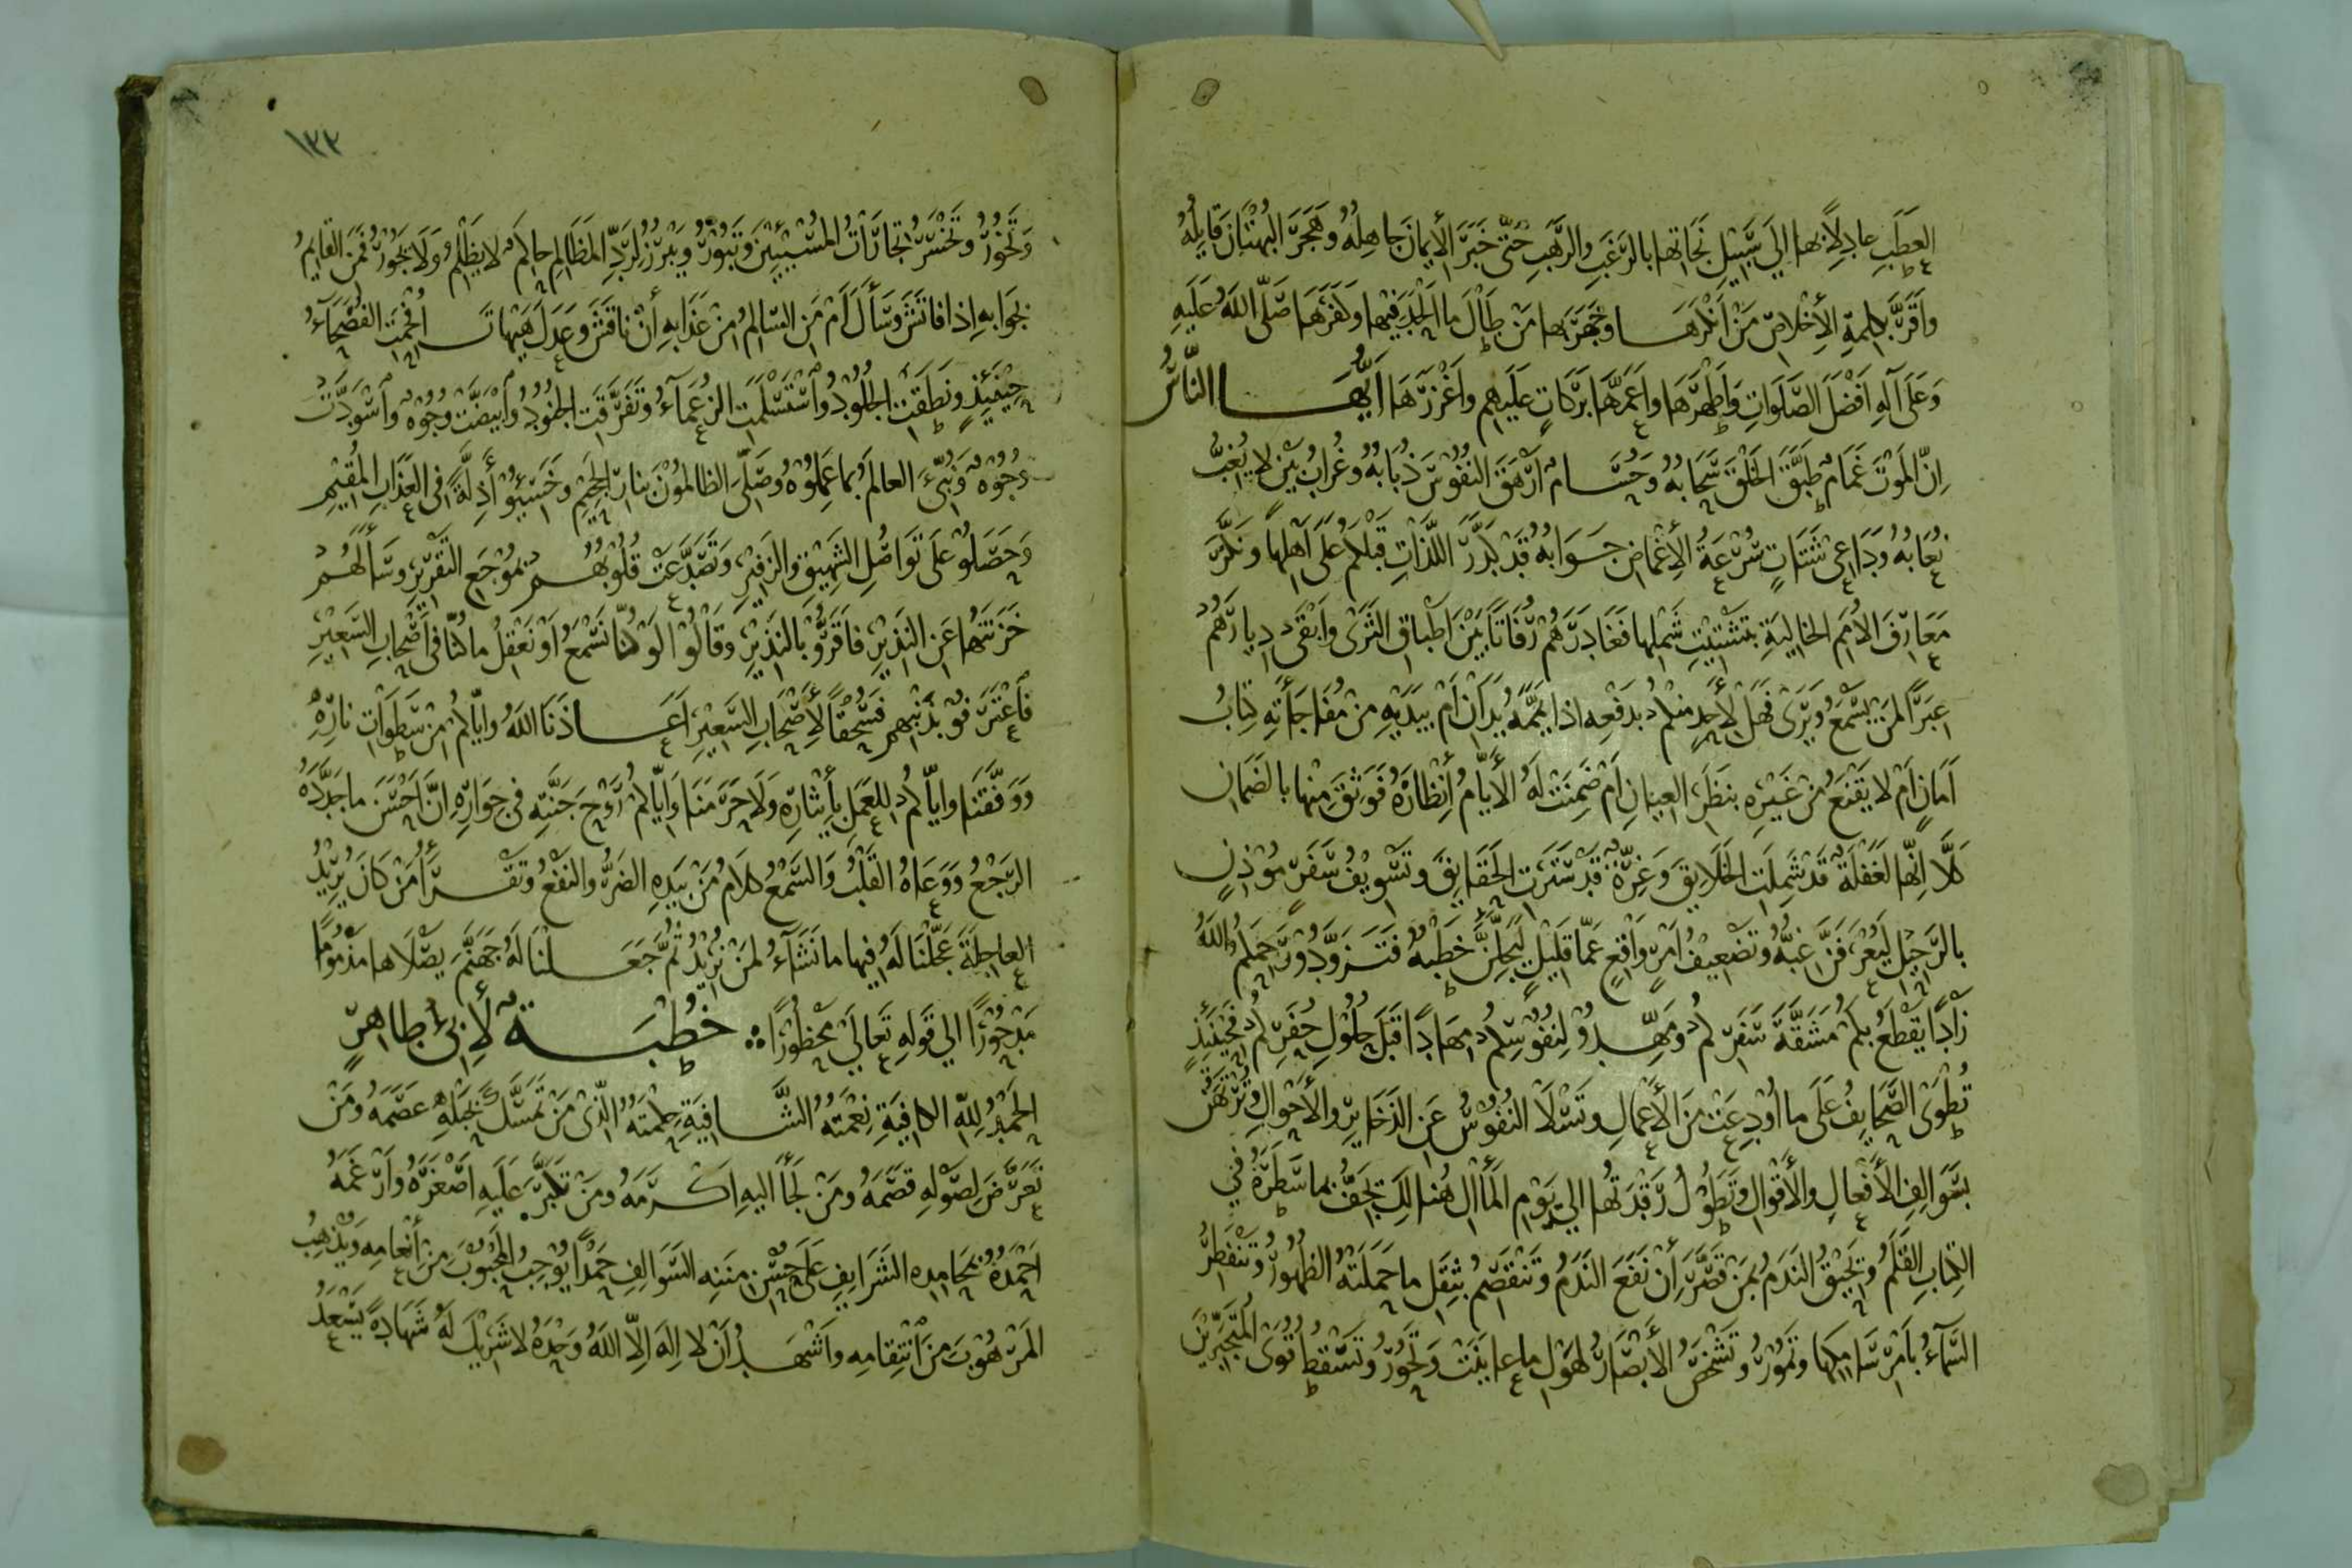 العَطَبِ عادِلاً بها الي سَبيلِ نَجاتِها بالرَغَبِ والرَّهَبِ حَتّى خَبَرَ الأيمانَ جاهِلُهُ وَهَجَرَ البُهْتَانَ قايِلُهُ
واَقَرَّ بكلِمةِ الأِخْلاصِ مَنْ اَنْكَرَهَا وجَهَرَ بها مَنْ طَالَ ما اَلْحَدَ فيها وكَفَرَهَا صَلّى اللهُ عَلَيهِ
وَعَلَى آلِهِ اَفْضَلَ الصَّلَوَاتِ وَاَطْهَرَهَا واَعَمَّهَا بَرَكَاتٍ عَلَيهِم واَغْزَرَهَا اَيُّهَا النَّاسُ
اِنّ المَوْتَ غَمَامٌ طَبَّقَ الخَلْقَ سَحَابهُ وَحُسَامٌ اَزْهَقَ النفُوْسَ ذُبَابهُ وغُرابُ بَيْنٍ لا يُغِبُّ
نُعَابهُ وَدَاعِى شَتَاتٍ سُرْعَةُ الأِغْمَاضِ جَوَابهُ قَدْ كَدَّرَ اللذَّاتِ قَبْلَكُمْ عَلى اَهْلِها وَنكَّرَ
مَعَارِفَ الاُمَمِ الخالِيَةِ بتَشْتِيْتِ شَمْلِها فَغَادَرَهُمْ رُفَاتًا بَيْنَ اَطْباقِ الثَرَى وَاَبْقَى دِيارَهُمْ
عِبَرًا لمَنْ يَسْمَعُ وَيَرَى فَهَلْ لأَحَدٍ مِنكمْ بدَفْعِه اذا يَمَّمَهُ يَدَانْ اَمْ بِيَدَيْهِ مِنْ مُفَاجَأَتِه كِتابُ
اَمَانٍ اَمْ لا يَقْنَعُ مِنْ غَيْرِهِ بنَظَرِ العِيَانِ اَمْ ضَمِنَتْ لَهُ الأَيَّامُ اِنْظارَهُ فَوَثِقَ مِنْها بالضَمانِ
كَلاَّ اِنَّها لَغَفْلَةٌ قَد شَمِلَتِ الخَلايِقَ وَغِرّةٌ قَدْ سَتَرَتِ الحَقَايِقَ وتَسْوِيْفُ سَفَرٍ مُوْذِنٍ
بالرَّحِيْلِ لَيُعْرَفَنَّ غِبُّهُ وتَضْعِيْفُ اَمْرٍ وَاقِعٍ عَمّا قَليْلٍ لَيَجِلَّنَّ خَطْبُهُ فَتَزَوَّدُوْا رَحِمَكُمُ اللهُ
زادًا يَقْطَعُ بكُمْ مَشَقَّةَ سَفَرِكُمْ ومَهِّدُوْا لِنُفُوْسِكُمْ مِهَادًا قَبْلَ حُلُوْلِ حُفَرِكُمْ فَحِيْنَئِذٍ
تُطْوَى الصَّحَايِفُ عَلَى ما اُوْدِعَتْ مِنَ الأَعْمالِ وتَسْلاَ النُفُوْسُ عَنِ الذَخَايِرِ والأَحْوالِ وتُرْتَهَنُ
بسَوَالِفِ الأَفْعالِ والأَقْوَالِ وتَطُوْلُ رَقْدَتُها الي يَوْمِ المَأَالِ هُنالِكَ يَجِفُّ بما سَطَرَهُ في
الكِتابِ القَلَمُ وَيَحِيْقُ النَدَمُ بمَنْ قَصَّرَ أِنْ نَفَعَ النَدَمُ وَتَنْقَصِمُ بثِقَلِ ما حَمَلَتْهُ الظُهُوْرُ وَتَنْفَطِرُ
السَّمآءُ بأَمْرِ سَامِكِها وتَمُوْرُ وتَشْخَصُ الأَبْصَارُ لهَوْلِ ما عايَنَتْ وَتَحُوْرُ وتَسْقُطُ قُوَى المُتَجَبِّرِيْنَ
١٣٣
وَتَخُوْرُ وتَخْسَرُ تجَارَاتُ المُسِيْئِيْنَ وَتَبُوْرُ وَيَبْرُزُ لِرَدِّ المَظَالِمِ حاكِمٌ لا يَظْلِمُ وَلا يَجُوْرُ فَمَنِ القايِمُ
بجَوَابهِ اِذا فاتَشَ وَسَأَلَ اَمْ مَنِ السّالِمُ مِنْ عَذَابِهِ أِنْ ناقَشَ وعَدَلَ هَيْهاتَ اُفْحِمَتِ الفُصَحَآءُ
حِيْنَئِذٍ ونَطَقَتِ الجُلُوْدُ وٱسْتَسْلَمَتِ الزُعَمَآءُ وتَفَرَّقَتِ الجنُودُ وٱبْيَضَّتْ وجُوْهٌ وٱسْوَدَّتْ
وُجُوْهٌ وَنُبِّئَ العالَمُ بما عَمِلُوْهُ وصَلِىَ الظالمُوْنَ بنارِ الجَحِيْمِ وخَسِئُوْا أَذِلّةً فى العَذَابِ المُقِيْمِ
وَحَصَلُوْا عَلَى تَوَاصُلِ الشَّهِيْقِ والزَفِيْرِ وَتَصَدَّعَتْ قُلُوْبُهُمْ بمُوْجِعِ التَقْرِيْرِ وسَأَلَهُمْ
خَزَنَتُها عَنِ النَذِيْرِ فاَقَرُّوْا بالنَذِيْرِ وقَالُوْا لَوْ كُنّا نَسْمَعُ اَوْ نَعْقِلُ ما كُنّا فى اَصْحابِ السَعِيْرِ
فَاعْتَرَفُوْا بذَنْبِهِمْ فَسُحْقًا لأَصْحَابِ السَعِيْرِ اَعَاذَنَا اللهُ وايّاكُمْ مِنْ سَطَوَاتِ نارِهِ
وَوَفَّقَنا وايّاكُمْ لِلعَمَلِ بأِيْثارِهِ وَلاَ حَرَمَنا واَيّاكُمْ رَوْحَ جَنَّتِهِ فى جِوَارِهِ اِنَّ اَحْسَنَ ما جَدَّدَهُ
الرَجْعُ وَوَعَاهُ القَلْبُ وَالسَّمْعُ كلاَمُ مَنْ بيَدِهِ الضَرُّ والنَفْعُ وتَقْرَأُ مَنْ كَانَ يُرِيْدُ
العاجِلَةَ عَجَّلْنَا لَهُ فِيها ما نَشَآءُ لمَنْ نُرِيْدُ ثُمَّ جَعَلْنَا لَهُ جَهَنَّمَ يَصْلاَها مَذْمُوْمًا
مَدْحُوْرًا الي قَولِهِ تَعَالَي مَحْظُوْرًا خُطْبَةٌ لأِبِىْ طاهِرٍ
الحَمْدُ للهِ الكافِيَةِ نِعْمَتُهُ الشَّافِيَةِ حِكْمَتُهُ الّذى مَنْ تَمَسَّكَ بحَبْلِهِ عَصَمَهُ ومَنْ
تَعَرَّضَ لِصَوْلِهِ قَصَمَهُ ومَنْ لَجَأَ اليهِ اكْرَمَهُ ومَنْ تَكَبَّرَ عَلَيهِ اَصْغَرَهُ وَاَرْغَمَهُ
اَحْمَدُهُ بمَحَامِدِه الشَرَايِفِ عَلَى حُسْنِ مِنَنِه السَوَالِفِ حَمْدًا يُوْجِبُ المَحْبُوْبَ مِنْ أِنْعَامِه وَيُذْهِبُ
المَرْهُوْبَ مِنَ ٱنْتِقامِه وَاَشْهَدُ اَنْ لا اِلهَ الاَّ اللهُ وَحْدَهُ لا شَرِيْكَ لَهُ شَهَادةً يَسْعَدُ